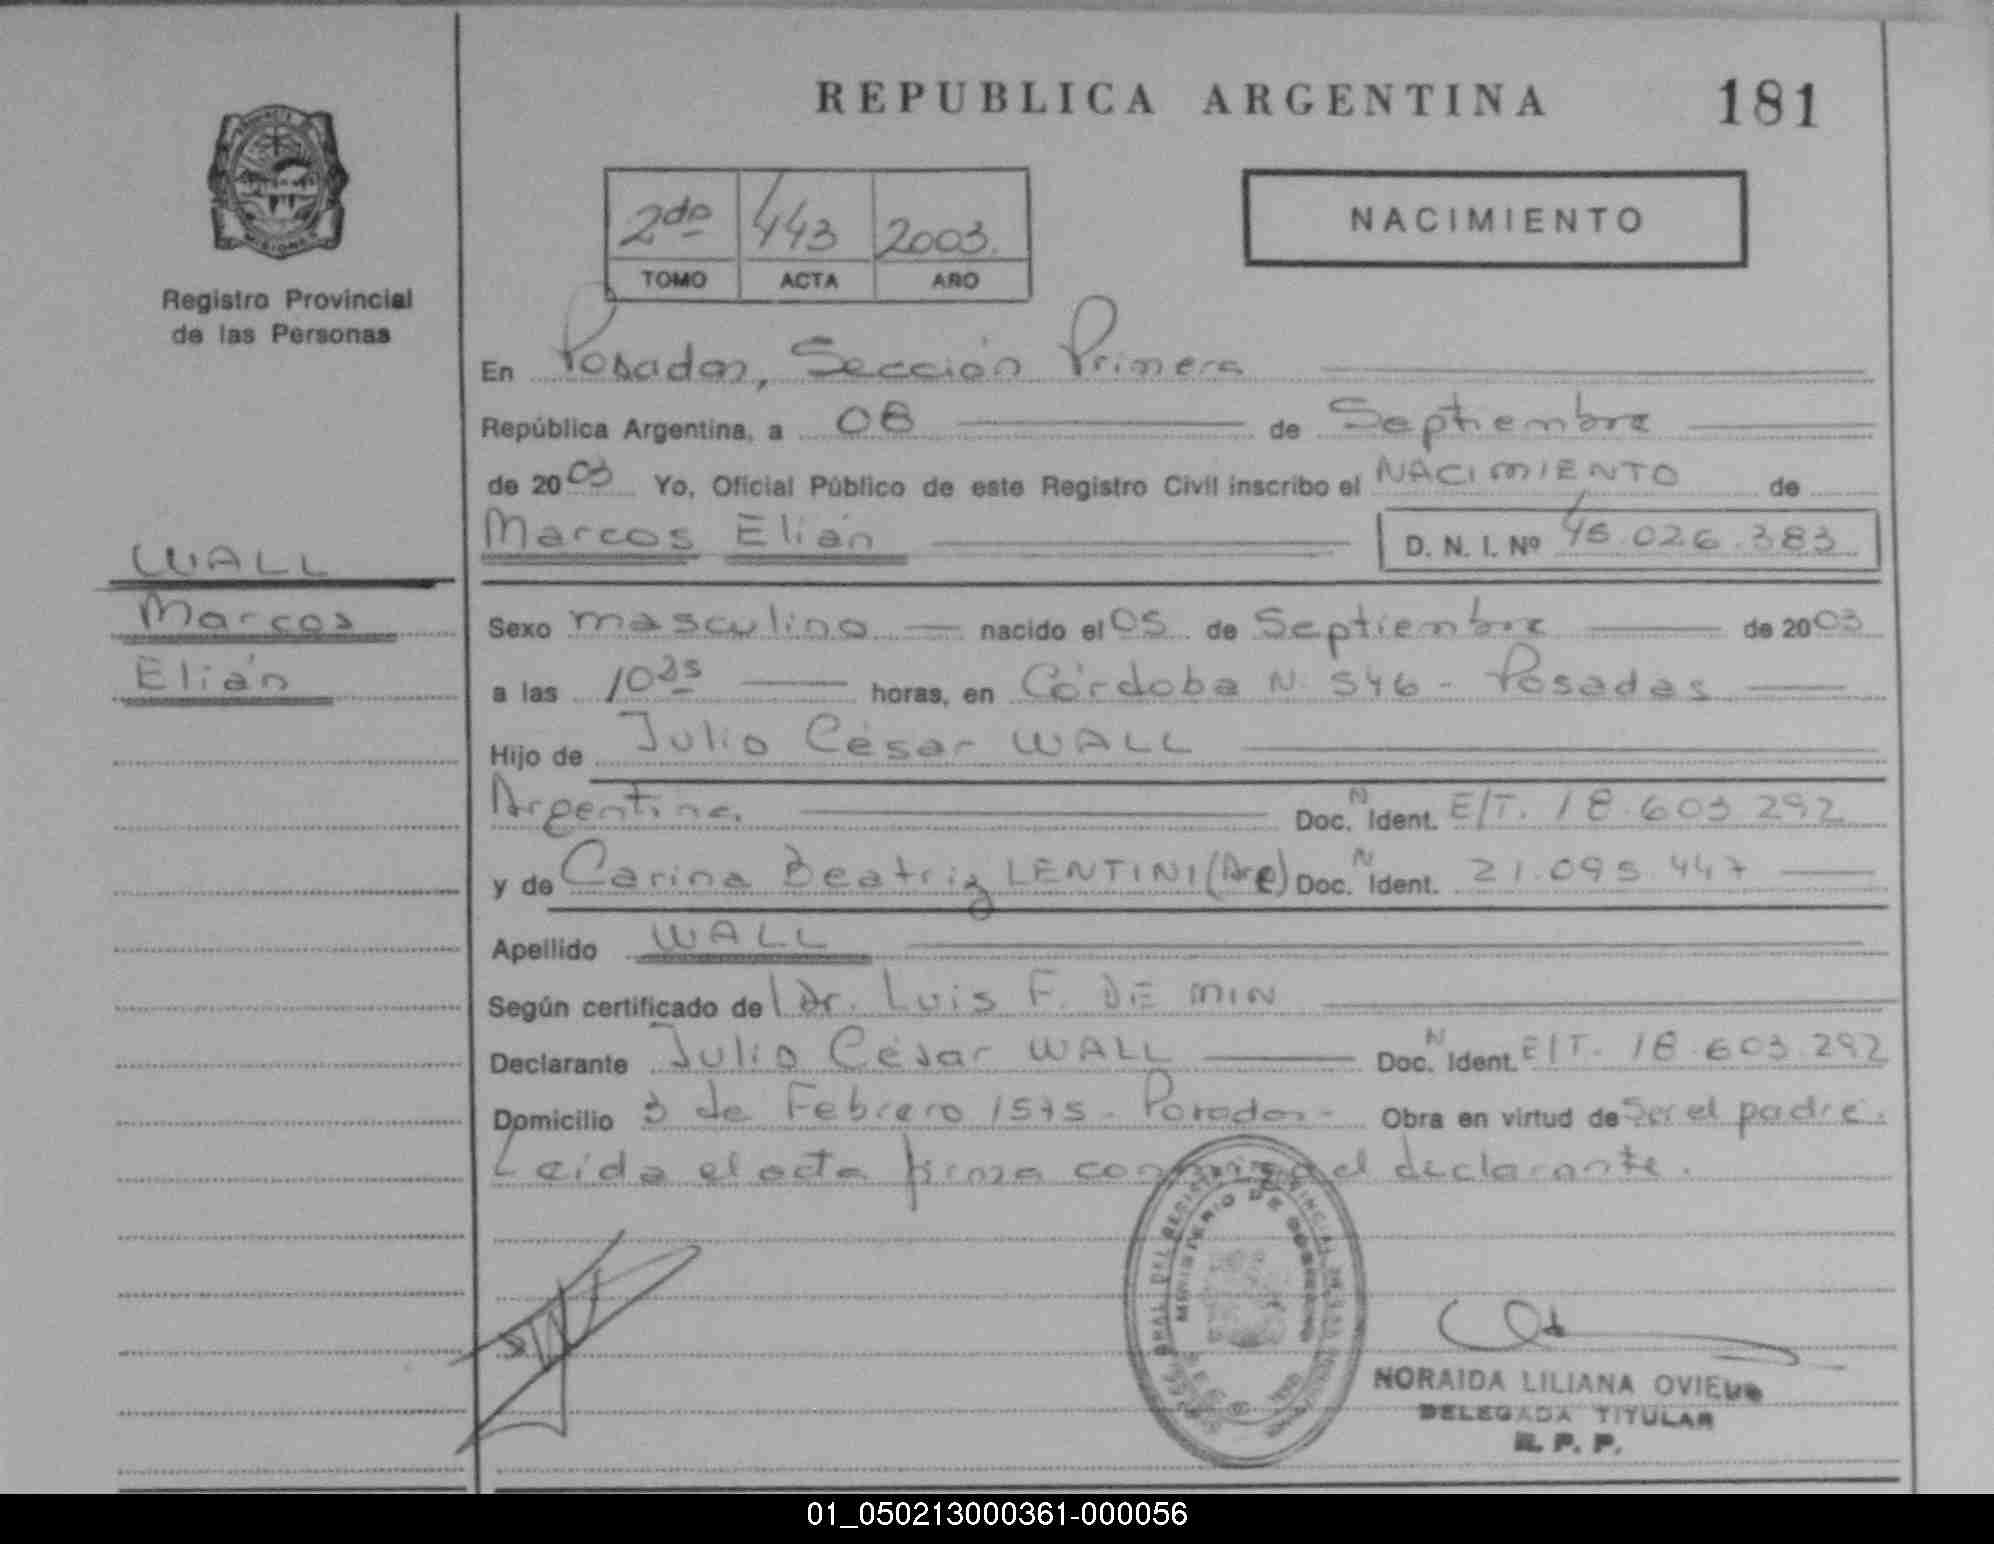 REPUBLICA ARGENTINA
181
2do 443 2003.
TOMO ACTA AÑO
NACIMIENTO
Registro Provincial
de las Personas
En Posadas, Sección Primera
República Argentina, a 08 de Septiembre
de 2003 Yo, Oficial Público de este Registro Civil inscribo el NACIMIENTO de
Marcos Elián D. N. I. Nº 45.026.383
WALL
Marcos
Elián
Sexo masculino nacido el 05 de Septiembre de 2003
a las 10 35 horas, en Córdoba N. 546 - Posadas
Hijo de Julio César WALL
Argentina. Doc. N Ident. E/T. 18.603.292
y de Carina Beatriz LENTINI (Arg) Doc. N Ident. 21.095.447
Apellido WALL
Según certificado de Dr. Luis F. DE MIN
Declarante Julio César WALL Doc. N Ident. E/T. 18.603.292
Domicilio 3 de Febrero 1575 - Posadas - Obra en virtud de Ser el padre.
Leída el acta firma conmigo el declarante.
MINISTERIO DE GOBIERNO
NORAIDA LILIANA OVIEDO
DELEGADA TITULAR
R. P. P.
01_050213000361-000056